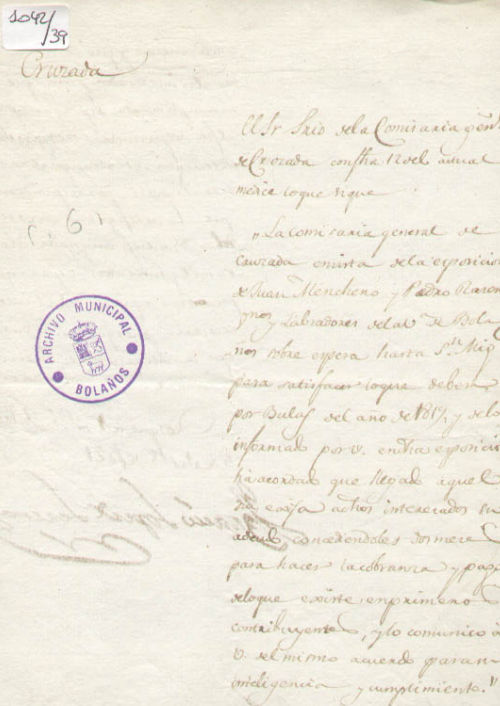 1042/39
Cruzada
(. 6)
ARCHIVO MUNICIPAL
BOLAÑOS
El Sr Srio de la Comisaria genl
de Cruzada con fha 12 del actual
me dice lo que sigue
"La Comisaria general de
Cruzada en vista de la esposicion
de Juan Mencheno y Pedro Ramon
y Labradores de la de Bola
ños sobre espera hasta Sn Mig
para satisfacer lo que deben
por Bulas del año de y de lo
informado por v. en dha esposicio
ha acordado que llegado aquel
exija a dhos interesados su
concediendoles dos mese
para hacer la cobranza y pago
de lo que existe en primero
contribuyente, y lo comunico a
v. del mismo acuerdo para su
inteligencia y cumplimiento."